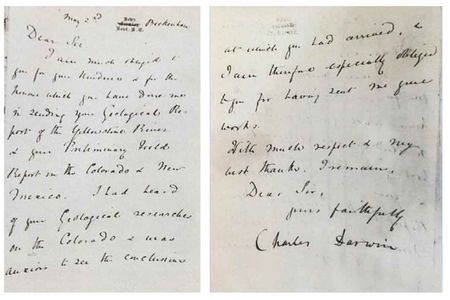 May 2nd
Down,
Beckenham
Kent. S.E.
Dear Sir
I am much obliged to
you for your kindness & for the
honour which you have done me
in sending your Geological Re-
port of the Yellowstone River
& your Preliminary Field
Report on the Colorado & New
Mexico. I had heard
of your Geological researches
on the Colorado & was
anxious to see the conclusions
at which you had arrived, &
I am therefore especially obliged
to you for having sent me your
works.
With much respect & my
best thanks. I remain,
Dear Sir,
yours faithfully
Charles Darwin